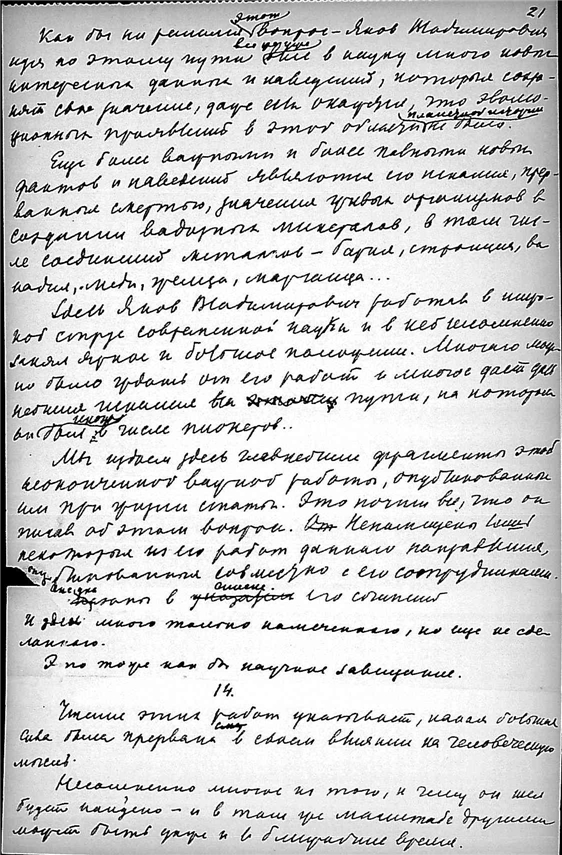 21
этот
Как бы ни решался вопрос – Яков Владимирович
идя по этому пути внес в науку много новых
интересных данных и наведений, которые сохра-
нят свое значение, даже если окажется, что эволю-
ционных проявлений в этой области не было.
Еще более важными и более полными новых
фактов и наведений являются его искания, прер-
ванные смертью, значения живых организмов в
создании водорных минералов, в том чис-
ле соединений металлов – бария, стронция, ва
надия, меди, железа, марганца...
Здесь Яков Владимирович работал в широ-
кой струе современной науки и в ней несомненно
занял яркое и большое положение. Многого мож
но было ждать от его работ и многое даст даль
нейшее искание на пути, на котором
он был в числе пионеров..
Мы издаем здесь главнейшие фрагменты этой
неоконченной научной работы, опубликованные
им при жизни статьи. Это почти все, что он
писал об этом вопросе. Не помещены лишь
некоторые из его работ данного направления,
опубликованные совместно с его сотрудниками.
в списке его сочинений
И здесь много только намеченного, но еще не сде
ланного.
Это тоже как бы научное завещание.
14.
Чтение этих работ указывает, какая большая
сила была прервана в своем влиянии на человеческую
мысль.
Несомненно многое из того, к чему он шел
будет найдено – и в том же масштабе другими
может быть даже и в ближайшее время.